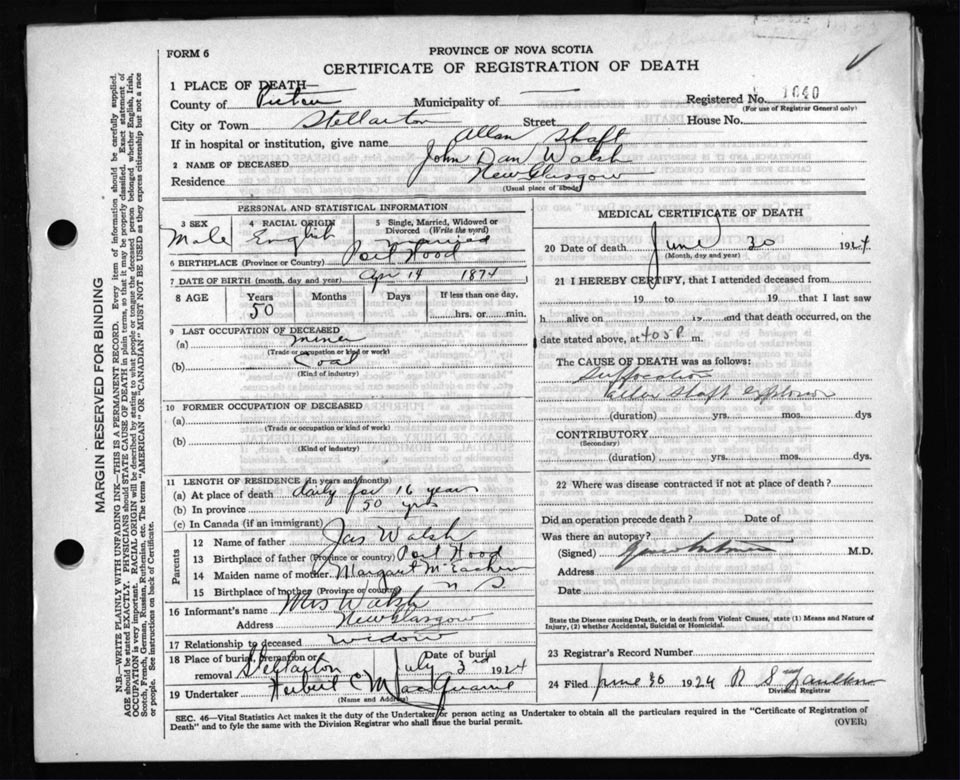 FORM 6
PROVINCE OF NOVA SCOTIA
CERTIFICATE OF REGISTRATION OF DEATH
MARGIN RESERVED FOR BINDING
N.B.—WRITE PLAINLY WITH UNFADING INK—THIS IS A PERMANENT RECORD. Every item of information should be carefully supplied.
AGE should be stated EXACTLY. PHYSICIANS should STATE CAUSE OF DEATH in plain terms, so that it may be properly classified. Exact statement of
OCCUPATION is very important. RACIAL ORIGIN will be described by stating to what people or tongue the deceased person belonged whether English, Irish,
Scotch, French, German, Russian, Ruthenian, etc. The terms "AMERICAN" OR "CANADIAN" MUST NOT BE USED as they express citizenship but not a race
or people. See instructions on back of Certificate.
1 PLACE OF DEATH—
County of Pictou Municipality of — Registered No. 1040
(For use of Registrar General only)
City or Town Stellarton Street House No.
If in hospital or institution, give name Allan Shaft
2 NAME OF DECEASED John Dan Walsh
Residence New Glasgow
(Usual place of abode)
PERSONAL AND STATISTICAL INFORMATION
3 SEX Male
4 RACIAL ORIGIN English
5 Single, Married, Widowed or Divorced (Write the word) married
6 BIRTHPLACE (Province or Country) Port Hood
7 DATE OF BIRTH (month, day and year) Apr 14 1874
8 AGE Years 50 Months Days If less than one day, hrs. or min.
9 LAST OCCUPATION OF DECEASED
(a) miner
(Trade or occupation or kind or work)
(b) Coal
(Kind of industry)
10 FORMER OCCUPATION OF DECEASED
(a)
(Trade or occupation or kind of work)
(b)
(Kind of industry)
11 LENGTH OF RESIDENCE (In years and months)
(a) At place of death daily for 16 years
(b) In province 50 yrs
(c) In Canada (if an immigrant)
Parents
12 Name of father Jas Walsh
13 Birthplace of father (Province or country) Port Hood
14 Maiden name of mother Margaret McEachern
15 Birthplace of mother (Province or country) N S
16 Informant's name Mrs Walsh
Address New Glasgow
17 Relationship to deceased widow
18 Place of burial, cremation or removal Stellarton Date of burial July 3rd 1924
19 Undertaker Herbert C MacQuarrie
(Name and Address)
MEDICAL CERTIFICATE OF DEATH
20 Date of death June 30 1924
(Month, day and year)
21 I HEREBY CERTIFY, that I attended deceased from
19 to 19 that I last saw
h alive on 19 and that death occurred, on
date stated above, at 405 P m.
The CAUSE OF DEATH was as follows:
Suffocation
Allan Shaft Explosion
(duration) yrs. mos. dys
CONTRIBUTORY
(Secondary)
(duration) yrs. mos. dys.
22 Where was disease contracted if not at place of death?
Did an operation precede death? Date of
Was there an autopsy?
(Signed) M.D.
Address
Date
State the Disease causing Death, or in death from Violent Causes, state (1) Means and Nature of Injury, (2) whether Accidental, Suicidal or Homicidal.
23 Registrar's Record Number
24 Filed June 30 1924 R S Faulkner
Division Registrar
SEC. 46—Vital Statistics Act makes it the duty of the Undertaker or person acting as Undertaker to obtain all the particulars required in the "Certificate of Registration of
Death" and to fyle the same with the Division Registrar who shall issue the burial permit.
(OVER)